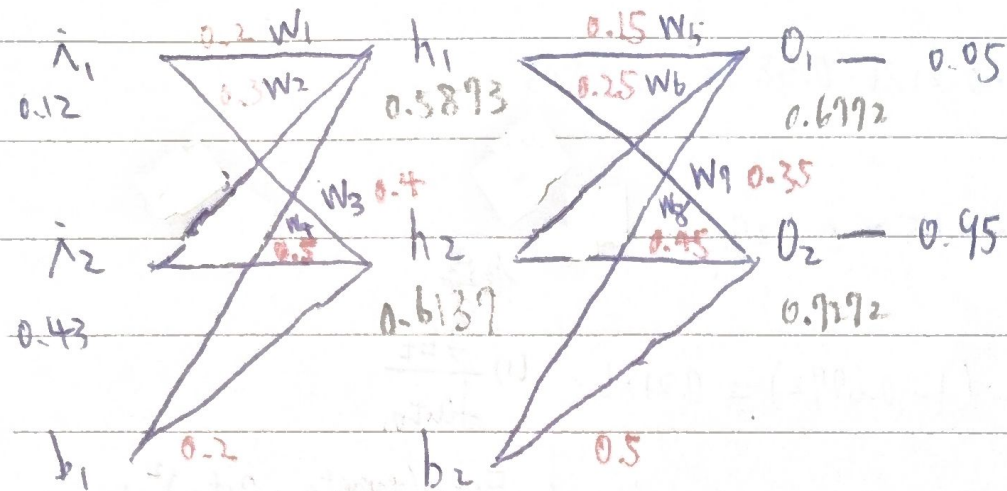 i₁ 0.2 W₁ h₁ 0.15 W₅ O₁ — 0.05
0.12 0.3 W₂ 0.5873 0.25 W₆ 0.6772
W₃ 0.4 W₇ 0.35
W₄ W₈
i₂ 0.5 h₂ 0.45 O₂ — 0.95
0.43 0.6137 0.7272
b₁ 0.2 b₂ 0.5